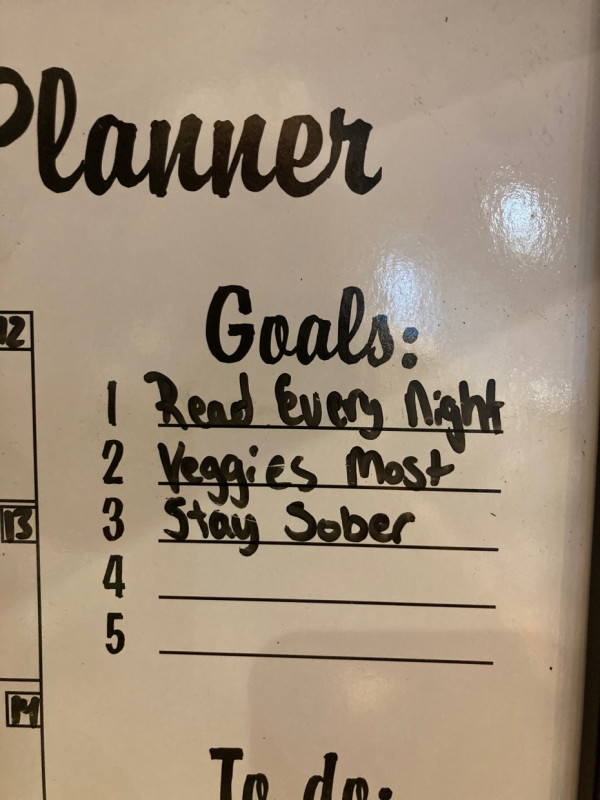 Planner
Goals:
12
1 Read Every Night
2 Veggies Most
3 Stay Sober
13
4
5
14
To do: